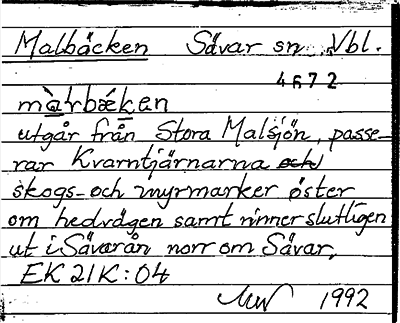 Malbäcken Sävar sn Vbl.
4672
màrbæ̀ken
utgår från Stora Malsjön, passe-
rar Kvarntjärnarna och
skogs- och myrmarker öster
om hedvägen samt rinner slutligen
ut i Sävarån norr om Sävar.
EK 21K:04
1992